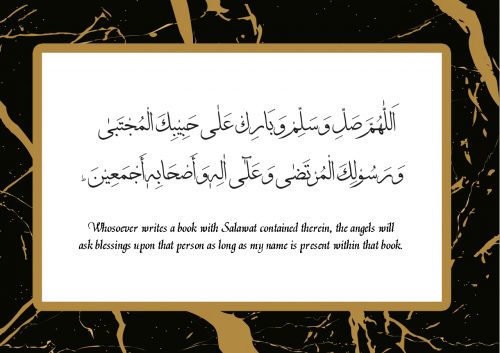 اَللّٰهُمَّ صَلِّ وَسَلِّمْ وَبَارِكْ عَلٰى حَبِيْبِكَ الْمُجْتَبٰى
وَرَسُوْلِكَ الْمُرْتَضٰى وَعَلٰٓى اٰلِهٖ وَأَصْحَابِهٖ أَجْمَعِيْنَ ۔
Whosoever writes a book with Salawat contained therein, the angels will
ask blessings upon that person as long as my name is present within that book.